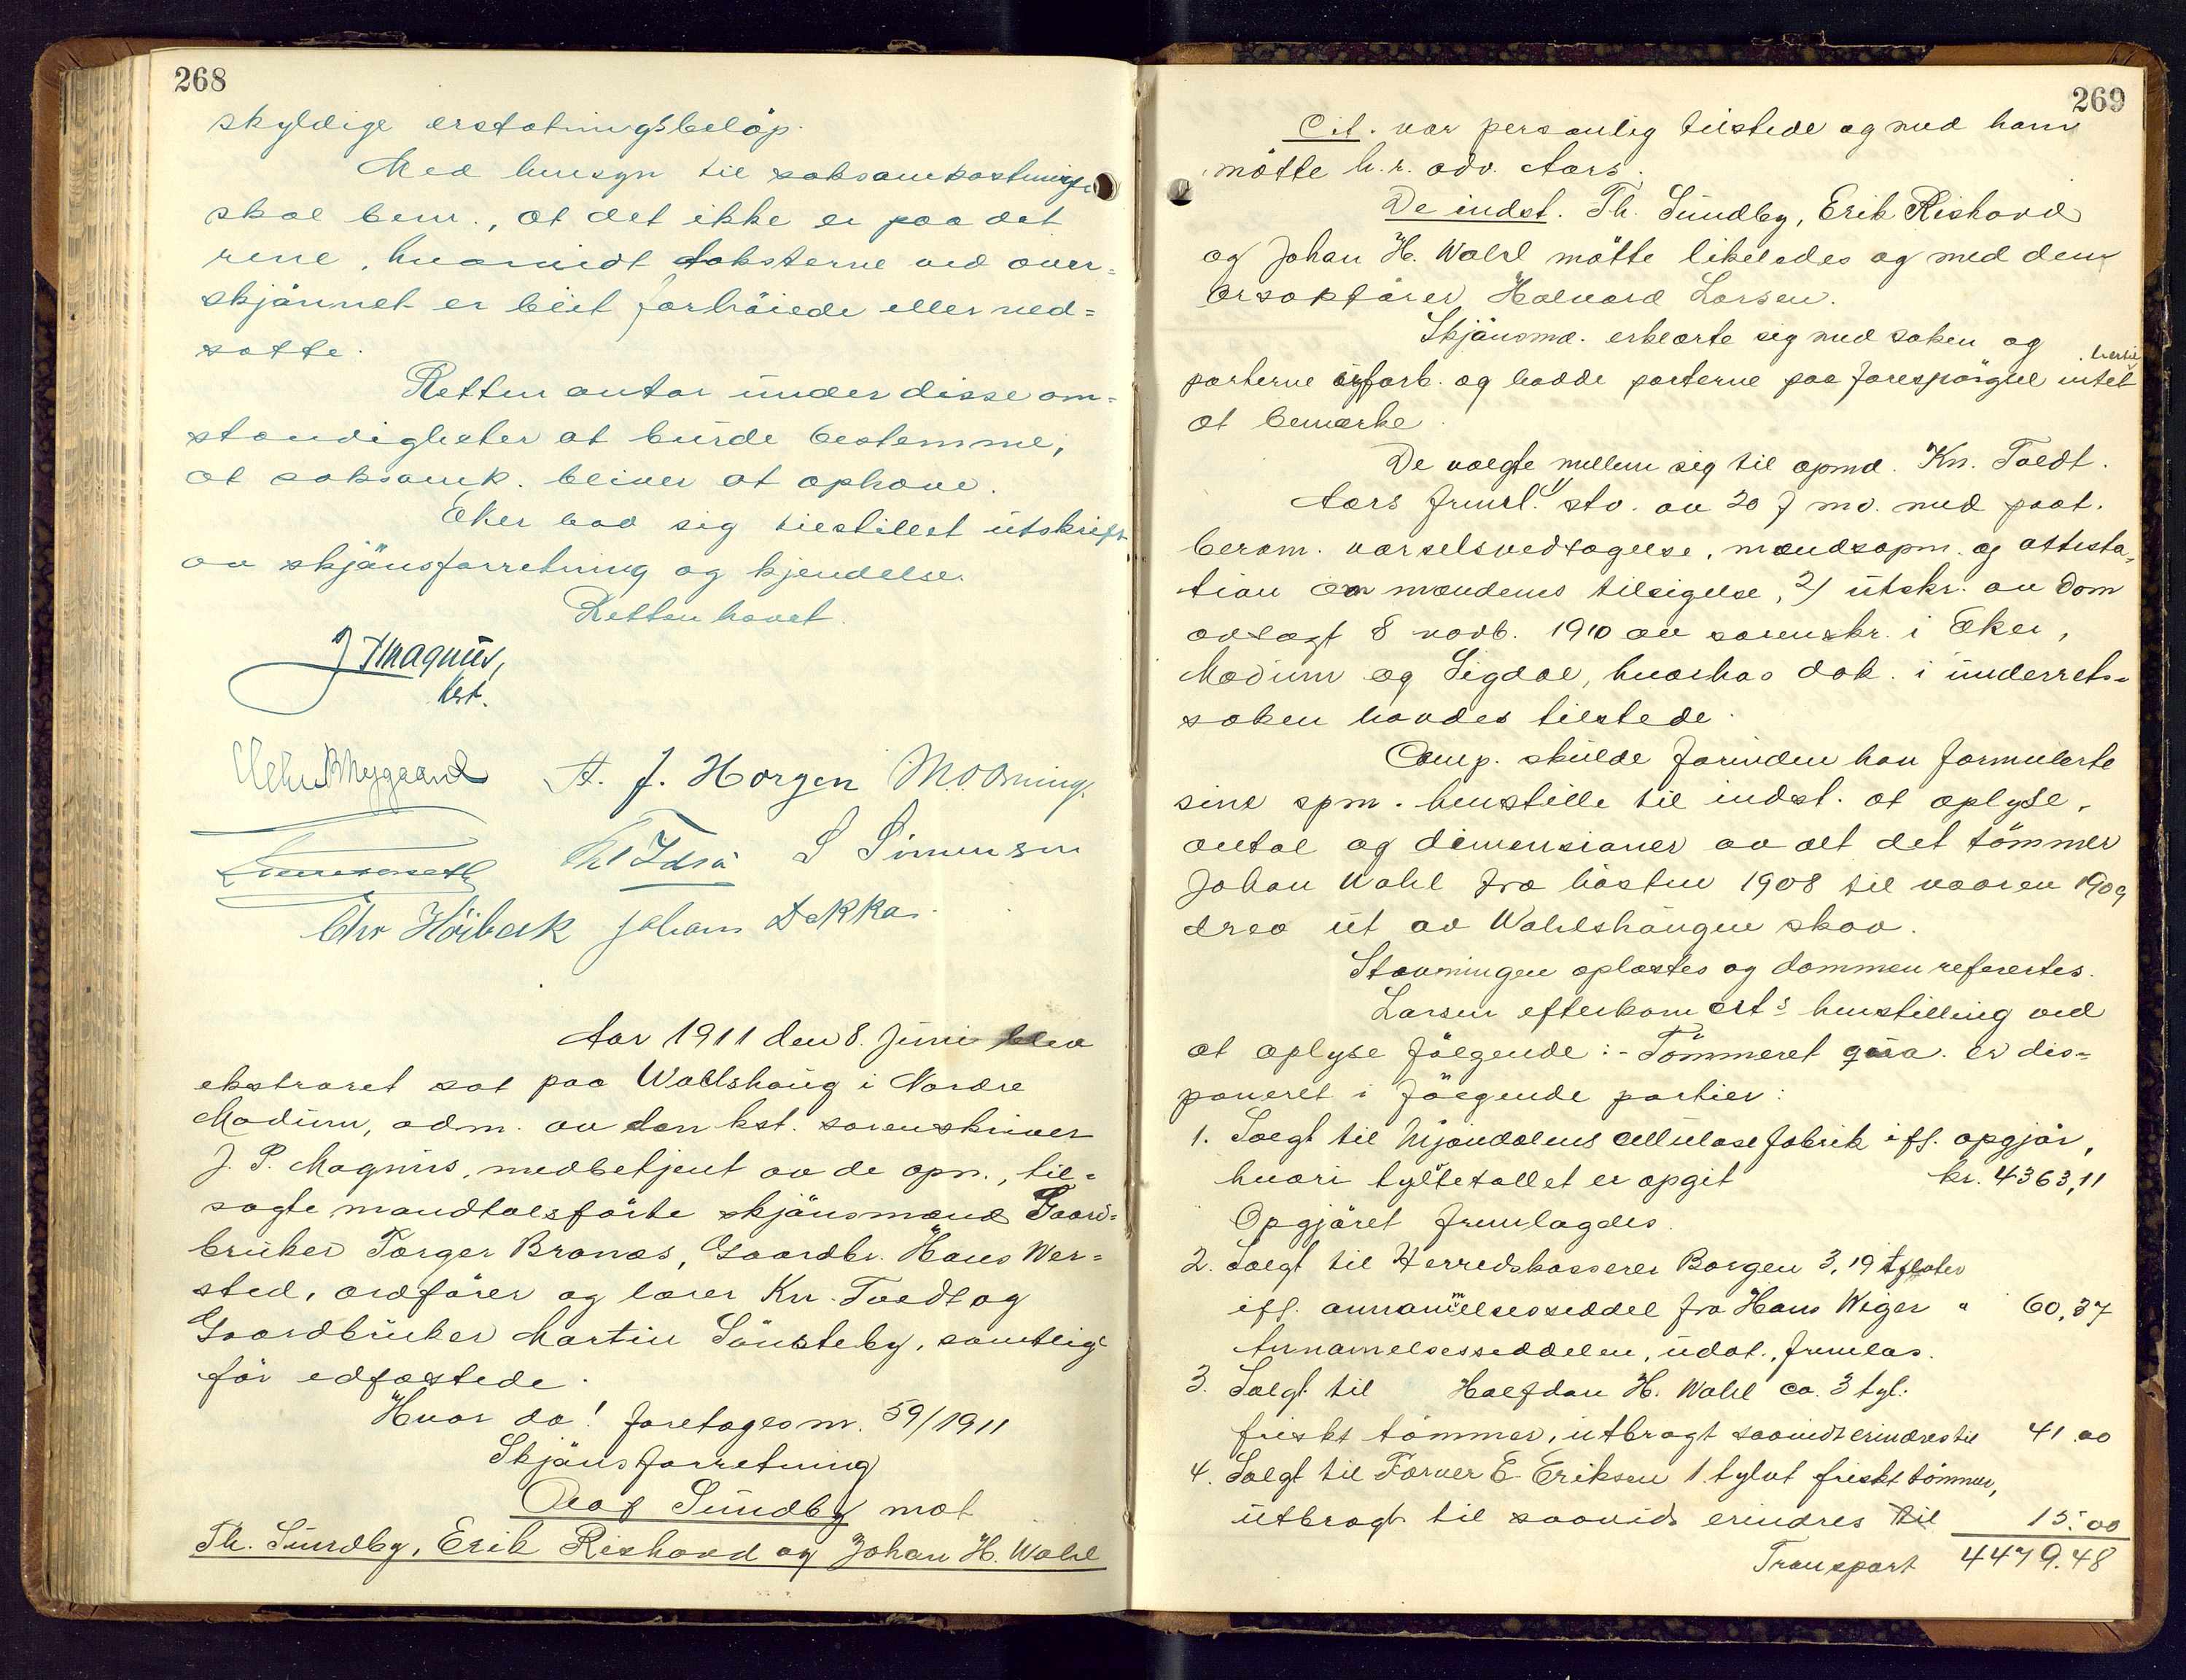 268
skyldige erstatningsbeløp.
Med hensyn til saksomkostninge
skal bem., at det ikke er paa det
rene, hvorvidt taksterne ved over=
skjønnet er bleit forhøiede eller ned=
satte.
Retten antar under disse om=
stændigheter at burde bestemme,
at saksomk. bliver at ophæve.
Eker bad sig tilstillet utskrift
av skjønsforretning og kjendelse.
Retten hævet.
J P Magnus,
kst.
A. J. Horgen M. O. Bruning.
S Simensen
Chr Höibak Johans Dakka.
Aar 1911 den 8. Juni blev
ekstraret sat paa Wahlshaug i Nordre
Modum, adm. av den kst. sorenskriver
J. P. Magnus, medbetjent av de opn., til=
sagte mandtalsførte skjønsmænd Gaard=
bruker Torger Bronæs, Gaardbr. Hans Wer=
sted, ordfører og lærer Kn. Toedt og
Gaardbruker Martin Sønsteby, samtlige
før edfæstede.
Hvor da! foretoges nr. 59/1911
Skjønsforretning
Olaf Sundby mot
Th. Sundby, Erik Rishovd og Johan H. Wahl
269
Cit. var personlig tilstede og med ham
møtte h.r. adv. Aars.
De indst. Th. Sundby, Erik Rishovd
og Johan H. Wahl møtte likeledes og med dem
orsakfører Halvard Larsen.
Skjønsmd. erklærte sig med saken og
hertil
parterne ufarb. og hadde parterne paa forespørgsel intet
at bemerke.
De valgte mellem sig til opmd. Kn. Toedt.
Aars freml. 1/ stv. av 20 f. md. med paat.
beram. varselsvedtagelse, mandsopn. og attesta=
tion om mændenes tilsigelse, 2/ utskr. av dom
avsagt 8 novb. 1910 av sorenskr. i Eker,
Modum og Sigdal, hvorhos dok. i underrets=
saken havdes tilstede.
Comp. skulde forinden han formulerte
sine spm. henstille til indst. at oplyse,
antal og dimensioner av alt det tømmer
Johan Wahl fra høsten 1908 til vaaren 1909
drev ut av Wahlshaugen skov.
Stævningen oplæstes og dommen referertes.
Larsen efterkom cit.s henstilling ved
at oplyse følgende: - Tømmeret er dis=
poneret i følgende partier:
1. Solgt til Mjøndalens cellulosefabrik ifl. opgjør,
hvori tyltetallet er opgit kr. 4363,11
Opgjøret fremlagdes.
2. Solgt til Herredskasserer Borgen 3,19 tylvter
ifl. annammelsesseddel fra Hans Wiger " 60,37
Annamelsesseddelen, udat., fremlas.
3. Solgt til Halfdan H. Wahl ca. 3 tyl.
friskt tømmer, utbragt saavidt erindres til 41.00
4. Solgt til Farver E. Eriksen 1 tylvt friskt tømmer,
utbragt til saavidt erindres til 15.00
Transport 4479.48